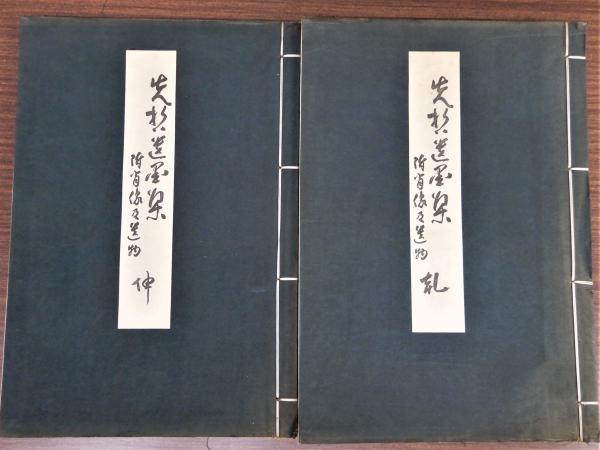 先哲遺墨集
附肖像及遺物
乾
先哲遺墨集
附肖像及遺物
坤